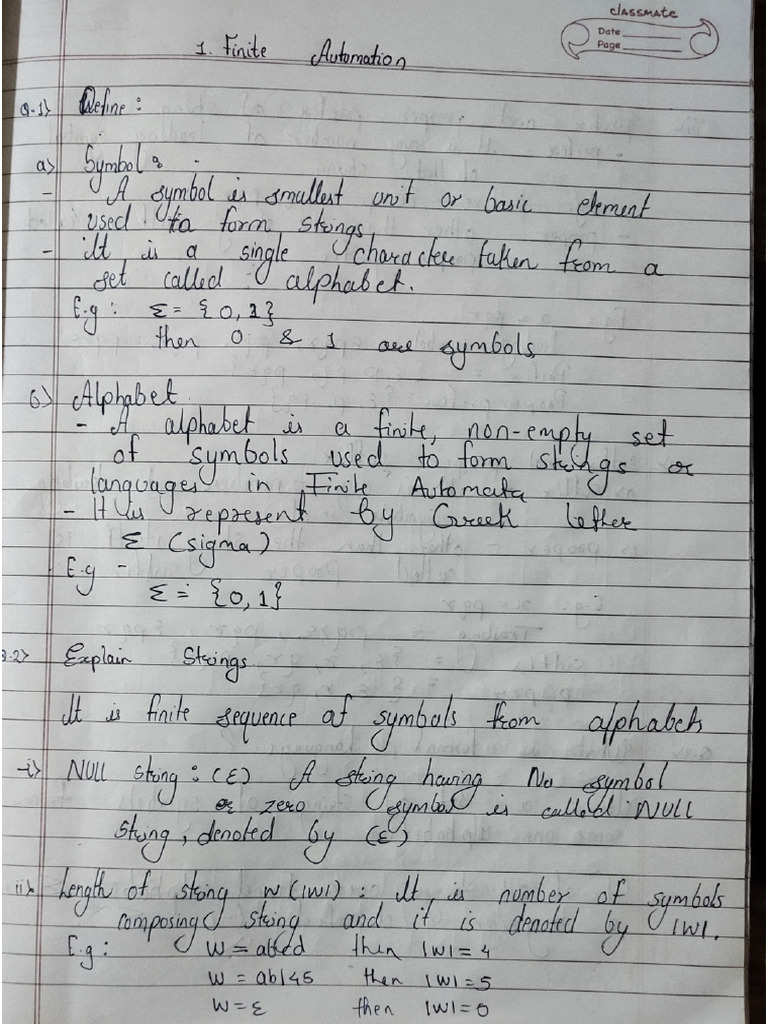 classmate
Date
Page
1. Finite Automation
Q.1> Define :
a> Symbol : -
- A symbol is smallest unit or basic element
used to form strings
- It is a single character taken from a
set called alphabet.
E.g : Σ = {0, 1}
then 0 & 1 are symbols
b> Alphabet
- A alphabet is a finite, non-empty set
of symbols used to form strings or
languages in Finite Automata
- It is represent by Greek letter
Σ (sigma)
E.g -
Σ = {0, 1}
Q.2> Explain Strings
It is finite sequence of symbols from alphabets
-i> NULL string : (ε) A string having No symbol
or zero symbol is called NULL
string, denoted by (ε)
ii> Length of string w (|w|) : It is number of symbols
composing string and it is denoted by |w|.
E.g : w = abcd then |w| = 4
w = ab145 then |w| = 5
w = ε then |w| = 0